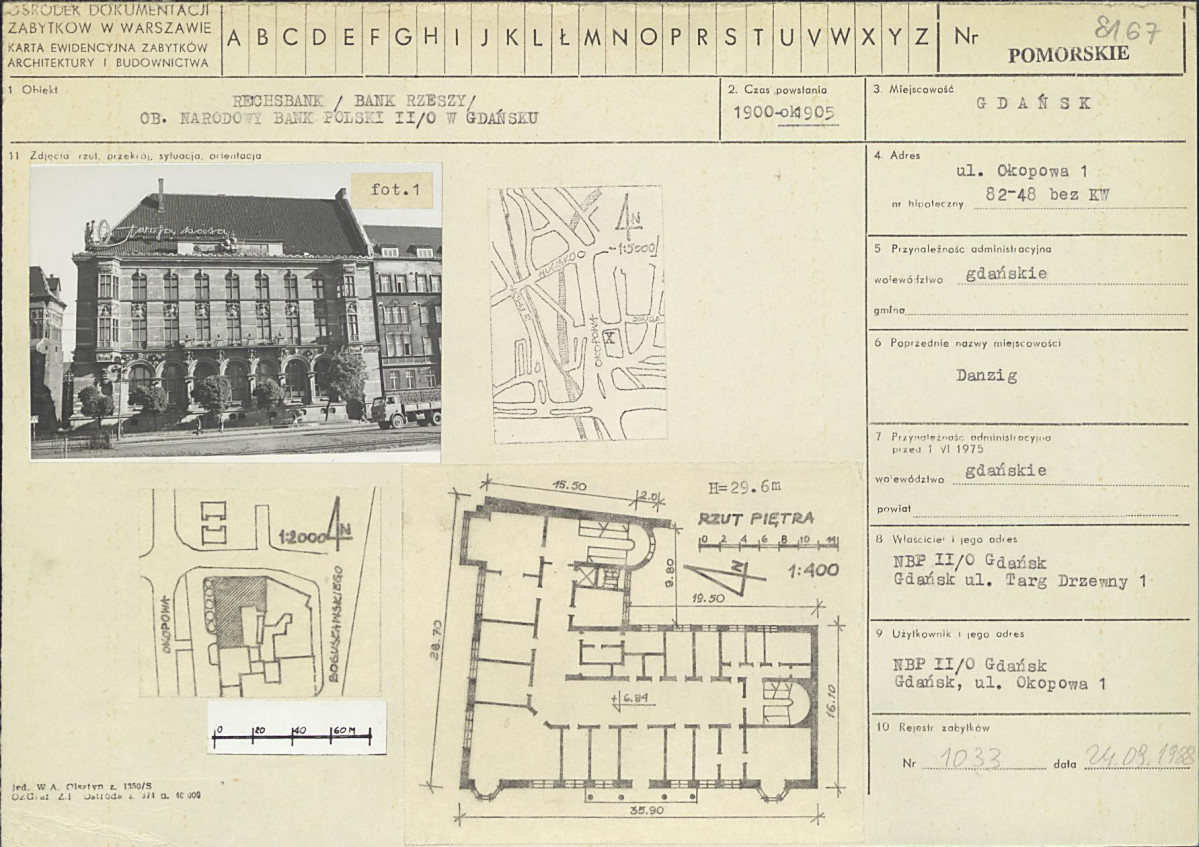 OŚRODEK DOKUMENTACJI
ZABYTKÓW W WARSZAWIE
KARTA EWIDENCYJNA ZABYTKÓW
ARCHITEKTURY I BUDOWNICTWA
A B C D E F G H I J K L Ł M N O P R S T U V W X Y Z
Nr 8167
POMORSKIE
1 Obiekt
RECHSBANK / BANK RZESZY/
OB. NARODOWY BANK POLSKI II/O W GDAŃSKU
2. Czas powstania
1900-ok1905
3. Miejscowość
GDAŃSK
11 Zdjęcia rzut, przekrój, sytuacja, orientacja
fot.1
twoja kasa
N
~1:5000/
HUCISKO
OKOPOWA
4. Adres
ul. Okopowa 1
nr hipoteczny 82-48 bez KW
5 Przynależność administracyjna
województwo gdańskie
gmina
6 Poprzednie nazwy miejscowości
Danzig
7 Przynależność administracyjna
przed 1 VI 1975
województwo gdańskie
powiat
8 Właściciel i jego adres
NBP II/O Gdańsk
Gdańsk ul. Targ Drzewny 1
9 Użytkownik i jego adres
NBP II/O Gdańsk
Gdańsk, ul. Okopowa 1
10 Rejestr zabytków
Nr 1033 data 24.09.1988
1:2000
N
OKOPOWA
BOGUSŁAWSKIEGO
0 20 40 60M
15.50
2.0
H=29.6m
RZUT PIĘTRA
0 2 4 6 8 10 14
N
1:400
9.80
19.50
28.70
+6.84
16.10
35.90